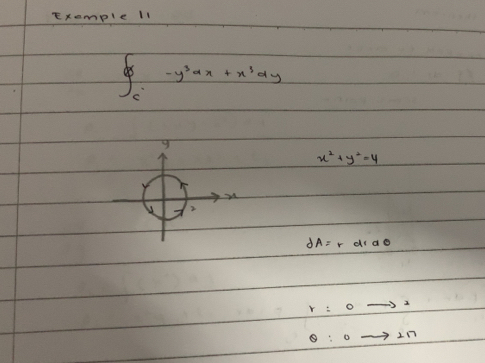 Example 11
∮ -y³dx + x³dy
c
y
x² + y² = 4
x
2
dA = r dr dθ
r : 0 → 2
θ : 0 → 2π